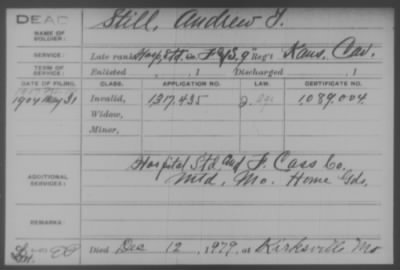 DEAD
NAME OF SOLDIER: Still, Andrew T.
SERVICE: Late rank Hosp. Std. Co. F & S, 9" Reg't Kans. Cav.
TERM OF SERVICE: Enlisted , 1 Discharged , 1
DATE OF FILING. CLASS. APPLICATION NO. LAW. CERTIFICATE NO.
1904 May 31 Invalid, 1317,435 1089.004
Widow,
Minor,
ADDITIONAL SERVICES: Hospital Std. and F. Cass Co.
Mtd, Mo. Home Gds.
REMARKS:
Died Dec 12, 1917, at Kirksville Mo